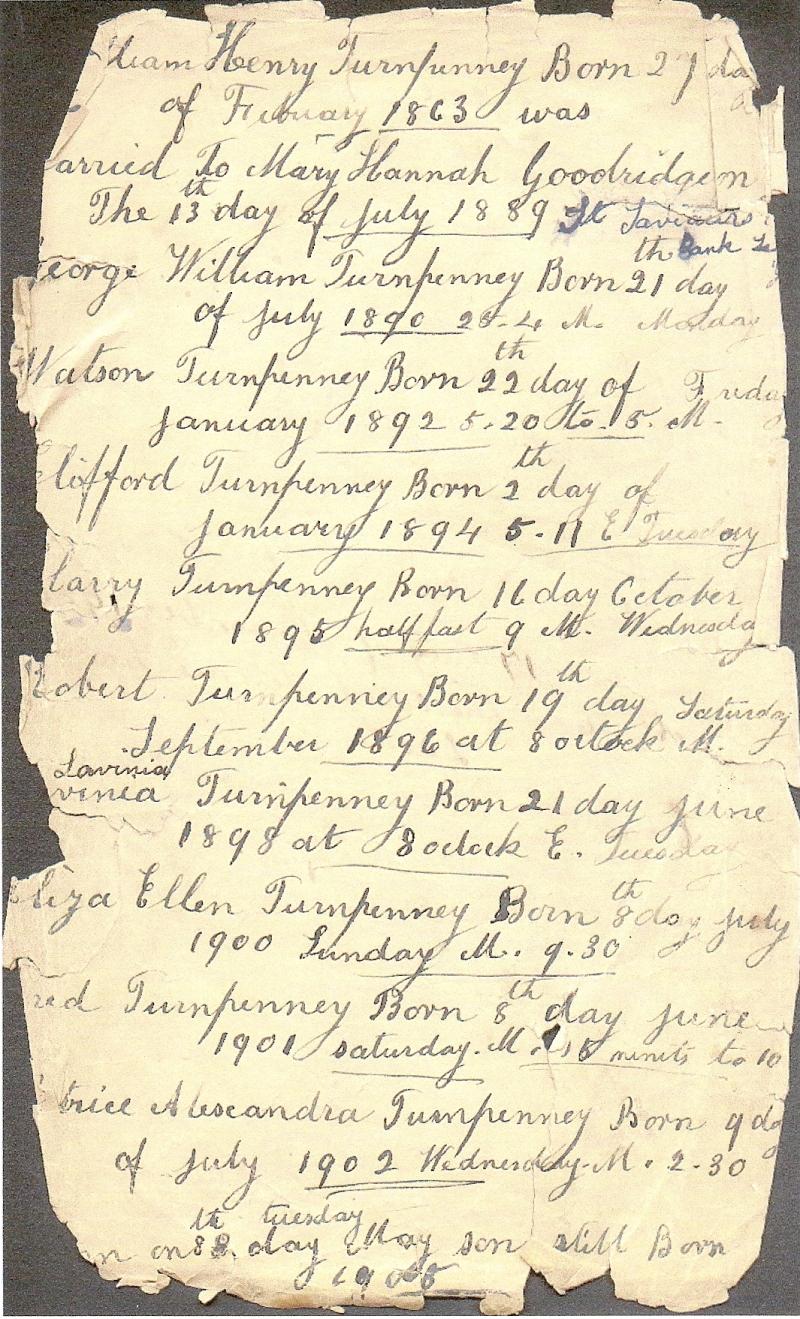 liam Henry Turnpenney Born 27 da
of Febuary 1863 was
arried To Mary Hannah Goodridgem
The 13th day of july 1889 St Saviours
th Bank
eorge William Turnpenney Born 21 day
of july 1890 25-4 M. Monday
Watson Turnpenney Born 22th day of Frida
january 1892 5.20 to 5. M.
lifford Turnpenney Born 2th day of
january 1894 5-11 E Tuesday
arry Turnpenney Born 16 day October
1895 half past 9 M. Wednesda
obert Turnpenney Born 19th day Saturday
September 1896 at 8 oclock M.
Lavinia
vinea Turnpenney Born 21 day june
1898 at 8 oclock E. Tuesday
liza Ellen Turnpenney Born 8th day july
1900 Sunday M. 9.30
red Turnpenney Born 8th day june
1901 saturday. M. 15 minits to 10
trice Alescandra Turnpenney Born 9 da
of july 1902 Wednesday. M. 2-30
th tuesday
on 8 day May son still Born
1905